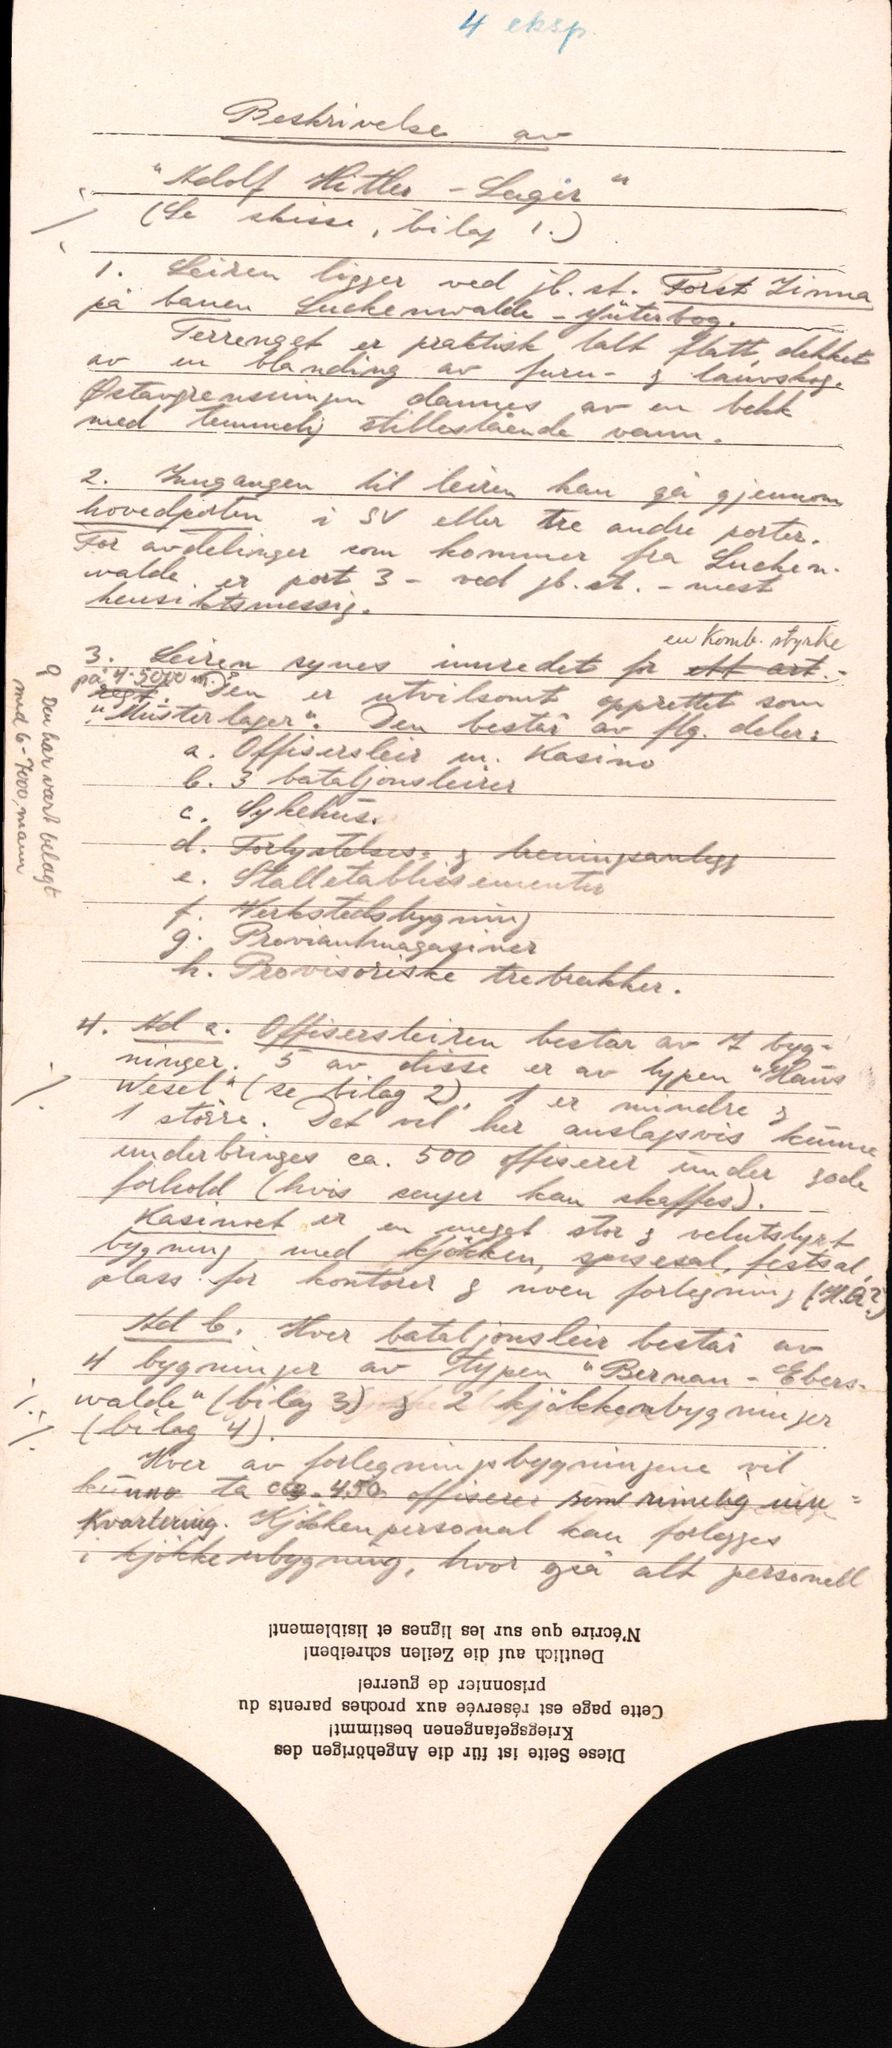 4 eksp.
Beskrivelse av
"Adolf Hitler - Lager"
(Se skisse, bilag 1.)
1. Leiren ligger ved jb. st. Forst Zinna
på banen Luckenwalde - Jüterbog.
Terrenget er praktisk talt flatt, dekket
av en blanding av furu- & lauvskog.
Østavgrensningen dannes av en bekk
med temmelig stillestående vann.
2. Inngangen til leiren kan gå gjennom
hovedporten i SV eller tre andre porter.
For avdelinger som kommer fra Lucken-
walde er port 3 - ved jb. st. - mest
hensiktsmessig.
en komb. styrke
3. Leiren synes innredet for ett art.-
på 4-5000 m.
regt. Den er utvilsomt opprettet som
"Musterlager". Den består av flg. deler:
a. Offisersleir m. Kasino
b. 3 bataljonsleirer
c. Sykehus.
d. Forlystelses- & treningsanlegg
e. Stalletablissementer
f. Verkstedsbygning
g. Proviantmagasiner
h. Provisoriske trebrakker.
Den har vært belagt
med 6-7000 mann
4. Ad a. Offisersleiren består av 7 byg-
ninger. 5 av disse er av typen "Haus
Wesel" (se bilag 2), 1 er mindre &
1 større. Det vil her anslagsvis kunne
underbringes ca. 500 offiserer under gode
forhold (hvis senger kan skaffes).
Kasinoet er en meget stor & velutstyrt
bygning med kjökken, spisesal, festsal,
plass for kontorer & noen forlegning (H.Q.?)
Ad b. Hver bataljonsleir består av
4 bygninger av typen "Bernau - Ebers-
walde" (bilag 3) & 2 kjökkenbygninger
(bilag 4).
Hver av forlegningsbygningene vil
kunne ta ca. 450 offiserer som rimelig inn-
kvartering. Kjökkenpersonal kan forlegges
i kjökkenbygning, hvor også alt personell
Diese Seite ist für die Angehörigen des
Kriegsgefangenen bestimmt!
Cette page est réservée aux proches parents du
prisonnier de guerre!
Deutlich auf die Zeilen schreiben!
N'écrire que sur les lignes et lisiblement!